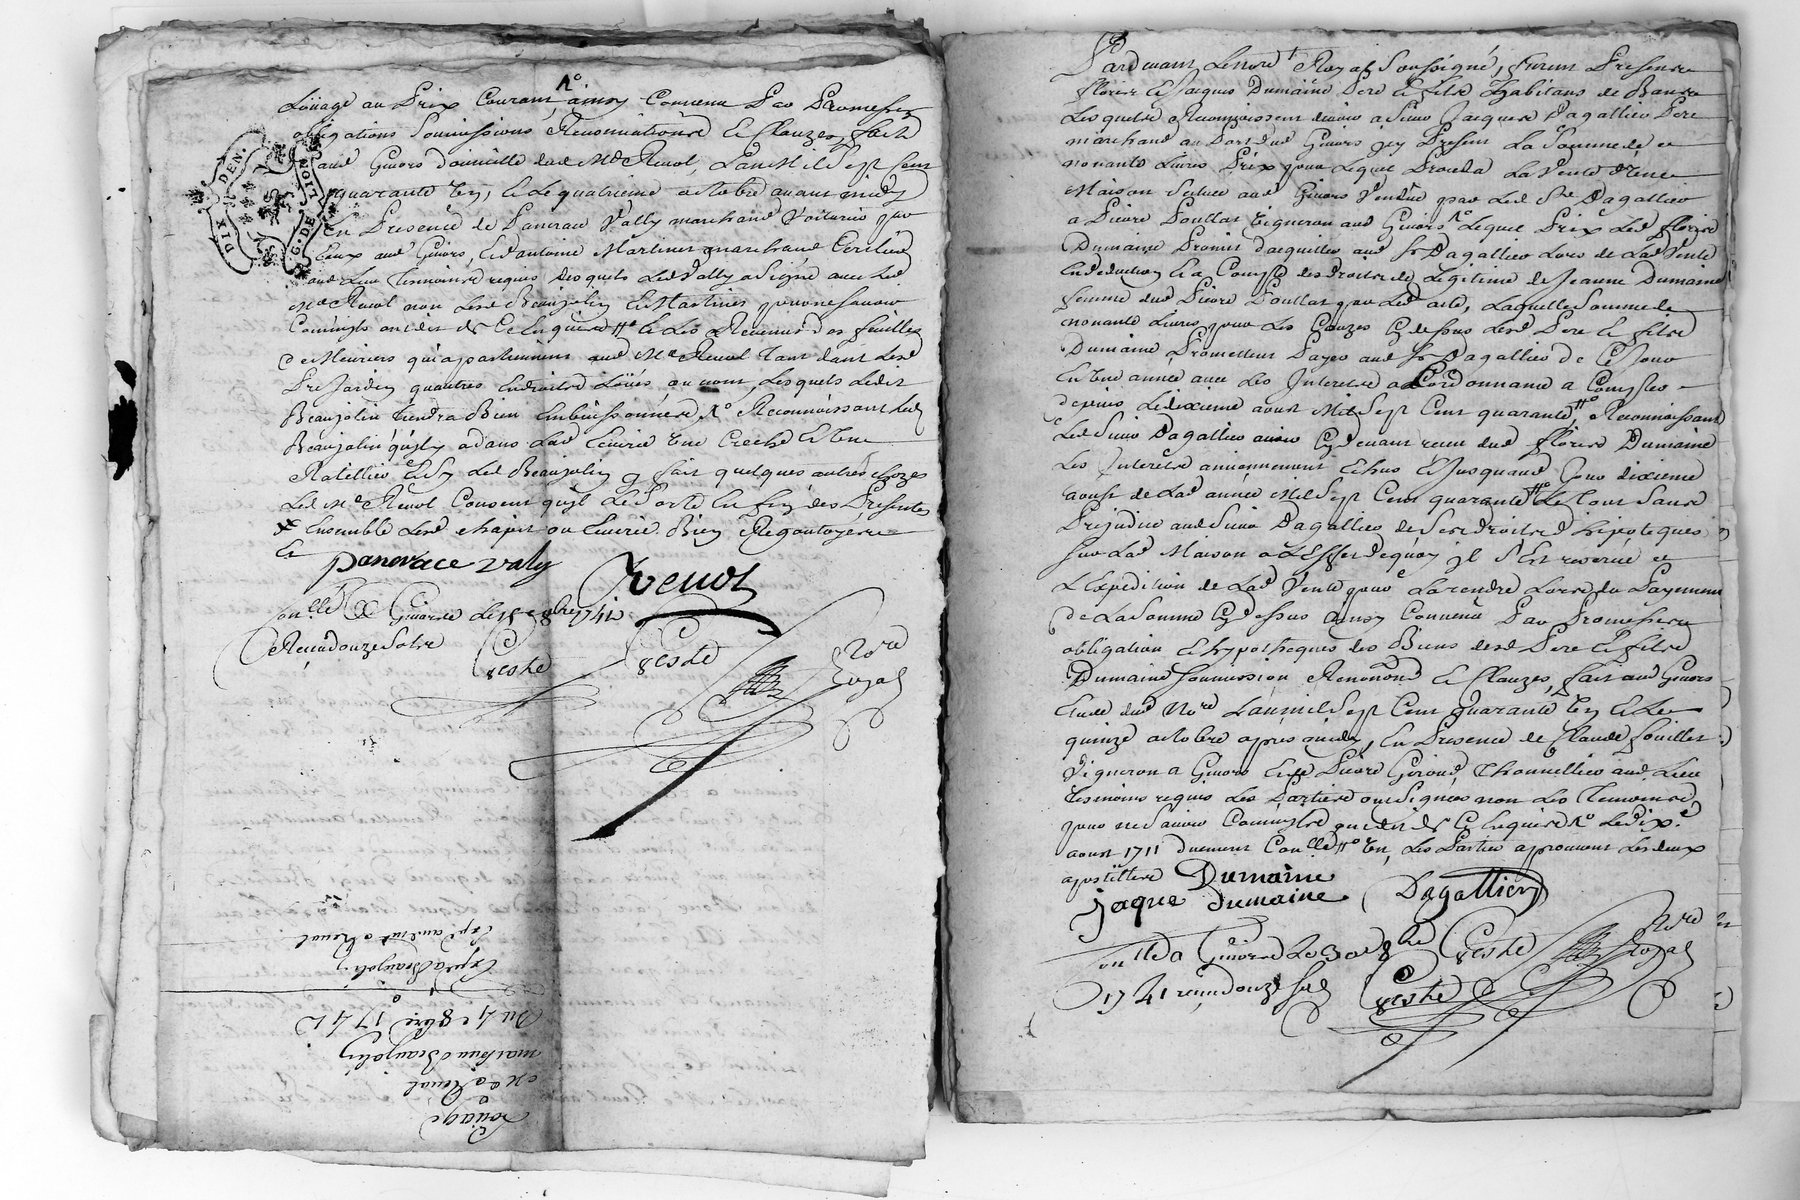 Loüage au prix Courant ainsy Convenu par promesses
obligations soumissions Renonciations & Clauzes, fait
aud Givors domicille dud Me Revol, L'an Mil sept Cent
quarante un, & le quatrieme octobre avant midy
En presence de pancrace Vally marchand Voiturier par
Eaux aud Givors, & d'antoine Martinet marchand
aud Lieu Temoins requis desquels Led Vally a signé avec Led
Me Revol non Led Beaujolin & Martinet pour ne savoir
Comme ils ont dit de Ce Enquis & Les Revenus des feuilles
de Meuriers qui appartiennent aud Me Revol tant dans Led
pre Jardin qu'autres Endroits Loüés ou non, Lesquels Ledit
Beaujolin tiendra Bien Embuissonnés Reconnoissant Led
Beaujolin qu'il y a dans Lad Ecurie une Creche & un
Ratellier & sy Led Beaujolin y fait quelques autres chozes
Led Me Revol Consent qu'il Les porte En fin des presentes
Ensemble Led chapit ou Ecurie Bien
DIX DEN.
G. DE LION
pancrace valy
Revol
Conlle a Givors le 15 8bre 1741
Receu douze sols
Ceste
Ceste
Nore
Royal
Loüage
Me Revol
mathieu Beaujolin
Du 4e 8bre 1741
Expé a Beaujolin
Expé aud Me Revol
Pardevant Le Nore Royal soussigné, furent presents
fleury & Jacques Dumaine pere & fils habitans de
Lesquels Reconnoissent devoir a sieur Jacques Dagallier pere
marchand au port dud Givors icy present La somme de
nonante Livres prix pour Lequel proceda La Vente d'une
Maison scituée aud Givors Vendüe par Led Sr Dagallier
a pierre Poullat Vigneron aud Givors Lequel prix Led fleury
Dumaine promit d'acquitter aud Sr Dagallier Lors de Lad Vente
En deduction & a Compte des droits de Legitime de Jeanne Dumaine
femme dud pierre Poullat par Led acte, Laquelle somme de
nonante Livres pour Les Cauzes Cy dessus Lesd pere & fils
Dumaine promettent payer aud Sr Dagallier de Ce Jour
En une année avec Les Interets a L'ordonnance a Compter
depuis Le dixieme aoust Mil sept Cent quarante Reconnoissant
Led sieur Dagallier avoir Cy devant receu dud fleury Dumaine
Les Interets anciennement Echus & Jusqu'aud Jour dixieme
aoust de Lad année Mil sept Cent quarante Le tout sans
prejudice aud sieur Dagallier de ses droits d'hypoteques
sur Lad Maison a L'Effet dequoy il s'Est reservé
L'Expedition de Lad Vente pour La rendre Lors du payement
de La somme Cy dessus ainsy Convenu par promesses
obligation & hypotheques des Biens desd pere & fils
Dumaine soumission Renonon & Clauzes, fait aud Givors
Etude dud Nore L'an mil sept Cent quarante un & Le
quinze octobre apres midy, En presence de Claude
Vigneron a Givors & de pierre Girond, Thonnellier aud Lieu
temoins requis Les parties ont signés non Les temoins
pour ne savoir Comme ils ont dit de Ce Enquis Le dixe
aoust 1711 duement Conllé un, Les parties aprouvent Les deux
apostilles
Dumaine
jaque dumaine
Dagallier
Conlle a Givors Le 30e 8bre
1741 receu douze sols
Ceste
Ceste
Nore
Royal